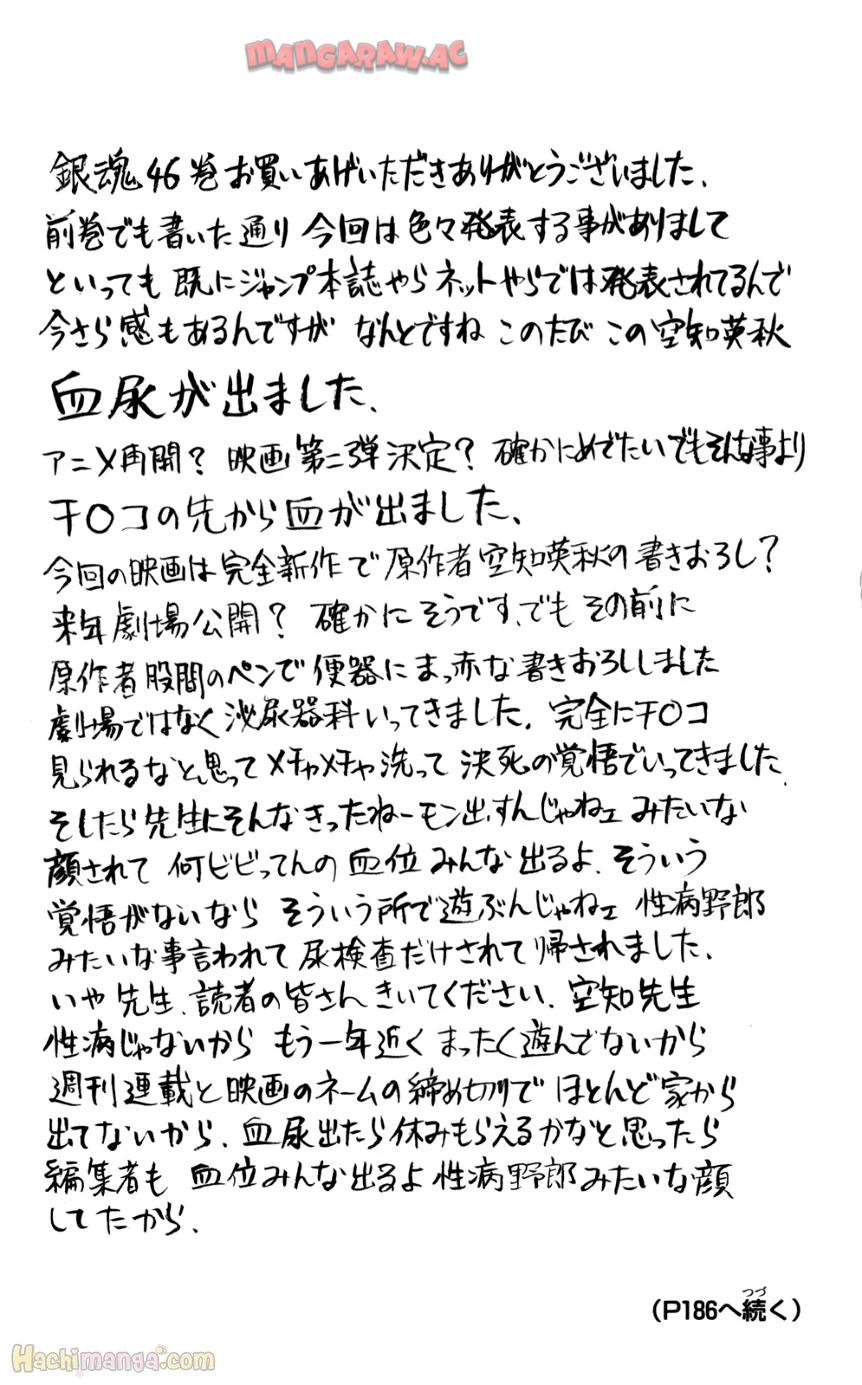 MANGARAW.AC
銀魂46巻お買いあげいただきありがとうございました、
前巻でも書いた通り 今回は色々発表する事がありまして
といっても 既にジャンプ本誌やら ネットやらでは発表されてるんで
今さら感もあるんですが なんとですね このたび この空知英秋
血尿が出ました、
アニメ再開? 映画第二弾決定? 確かにめでたいでもそんな事より
チ○コの先から血が出ました、
今回の映画は完全新作で原作者空知英秋の書きおろし?
来年劇場公開? 確かにそうです、でも その前に
原作者股間のペンで便器にまっ赤な書きおろししました
劇場ではなく泌尿器科いってきました、完全にチ○コ
見られるなと思ってメチャメチャ洗って 決死の覚悟でいってきました、
そしたら先生にそんなきったねーモン出すんじゃねェ みたいな
顔されて 何ビビってんの 血位みんな出るよ、そういう
覚悟がないなら そういう所で遊ぶんじゃねェ 性病野郎
みたいな事言われて 尿検査だけされて帰されました、
いや先生、読者の皆さんきいてください、空知先生
性病じゃないから もう一年近くまったく遊んでないから
週刊連載と映画のネームの締め切りで ほとんど家から
出てないから、血尿出たら休みもらえるかなと思ったら
編集者も 血位みんな出るよ 性病野郎みたいな顔
してたから、
(P186へ続く)
つづ
Hachimanga.com